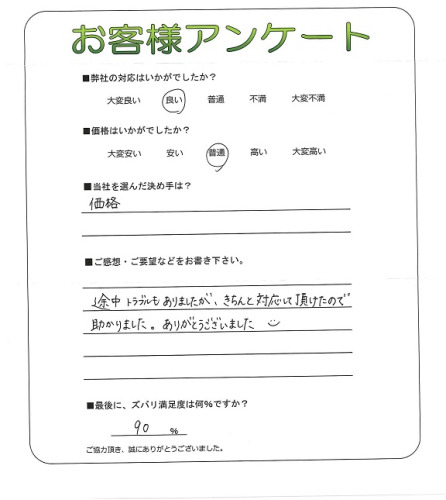 お客様アンケート
■弊社の対応はいかがでしたか？
大変良い 良い 普通 不満 大変不満
■価格はいかがでしたか？
大変安い 安い 普通 高い 大変高い
■当社を選んだ決め手は？
価格
■ご感想・ご要望などをお書き下さい。
途中トラブルもありましたが、きちんと対応して頂けたので
助かりました。ありがとうございました
■最後に、ズバリ満足度は何%ですか？
90 %
ご協力頂き、誠にありがとうございました。